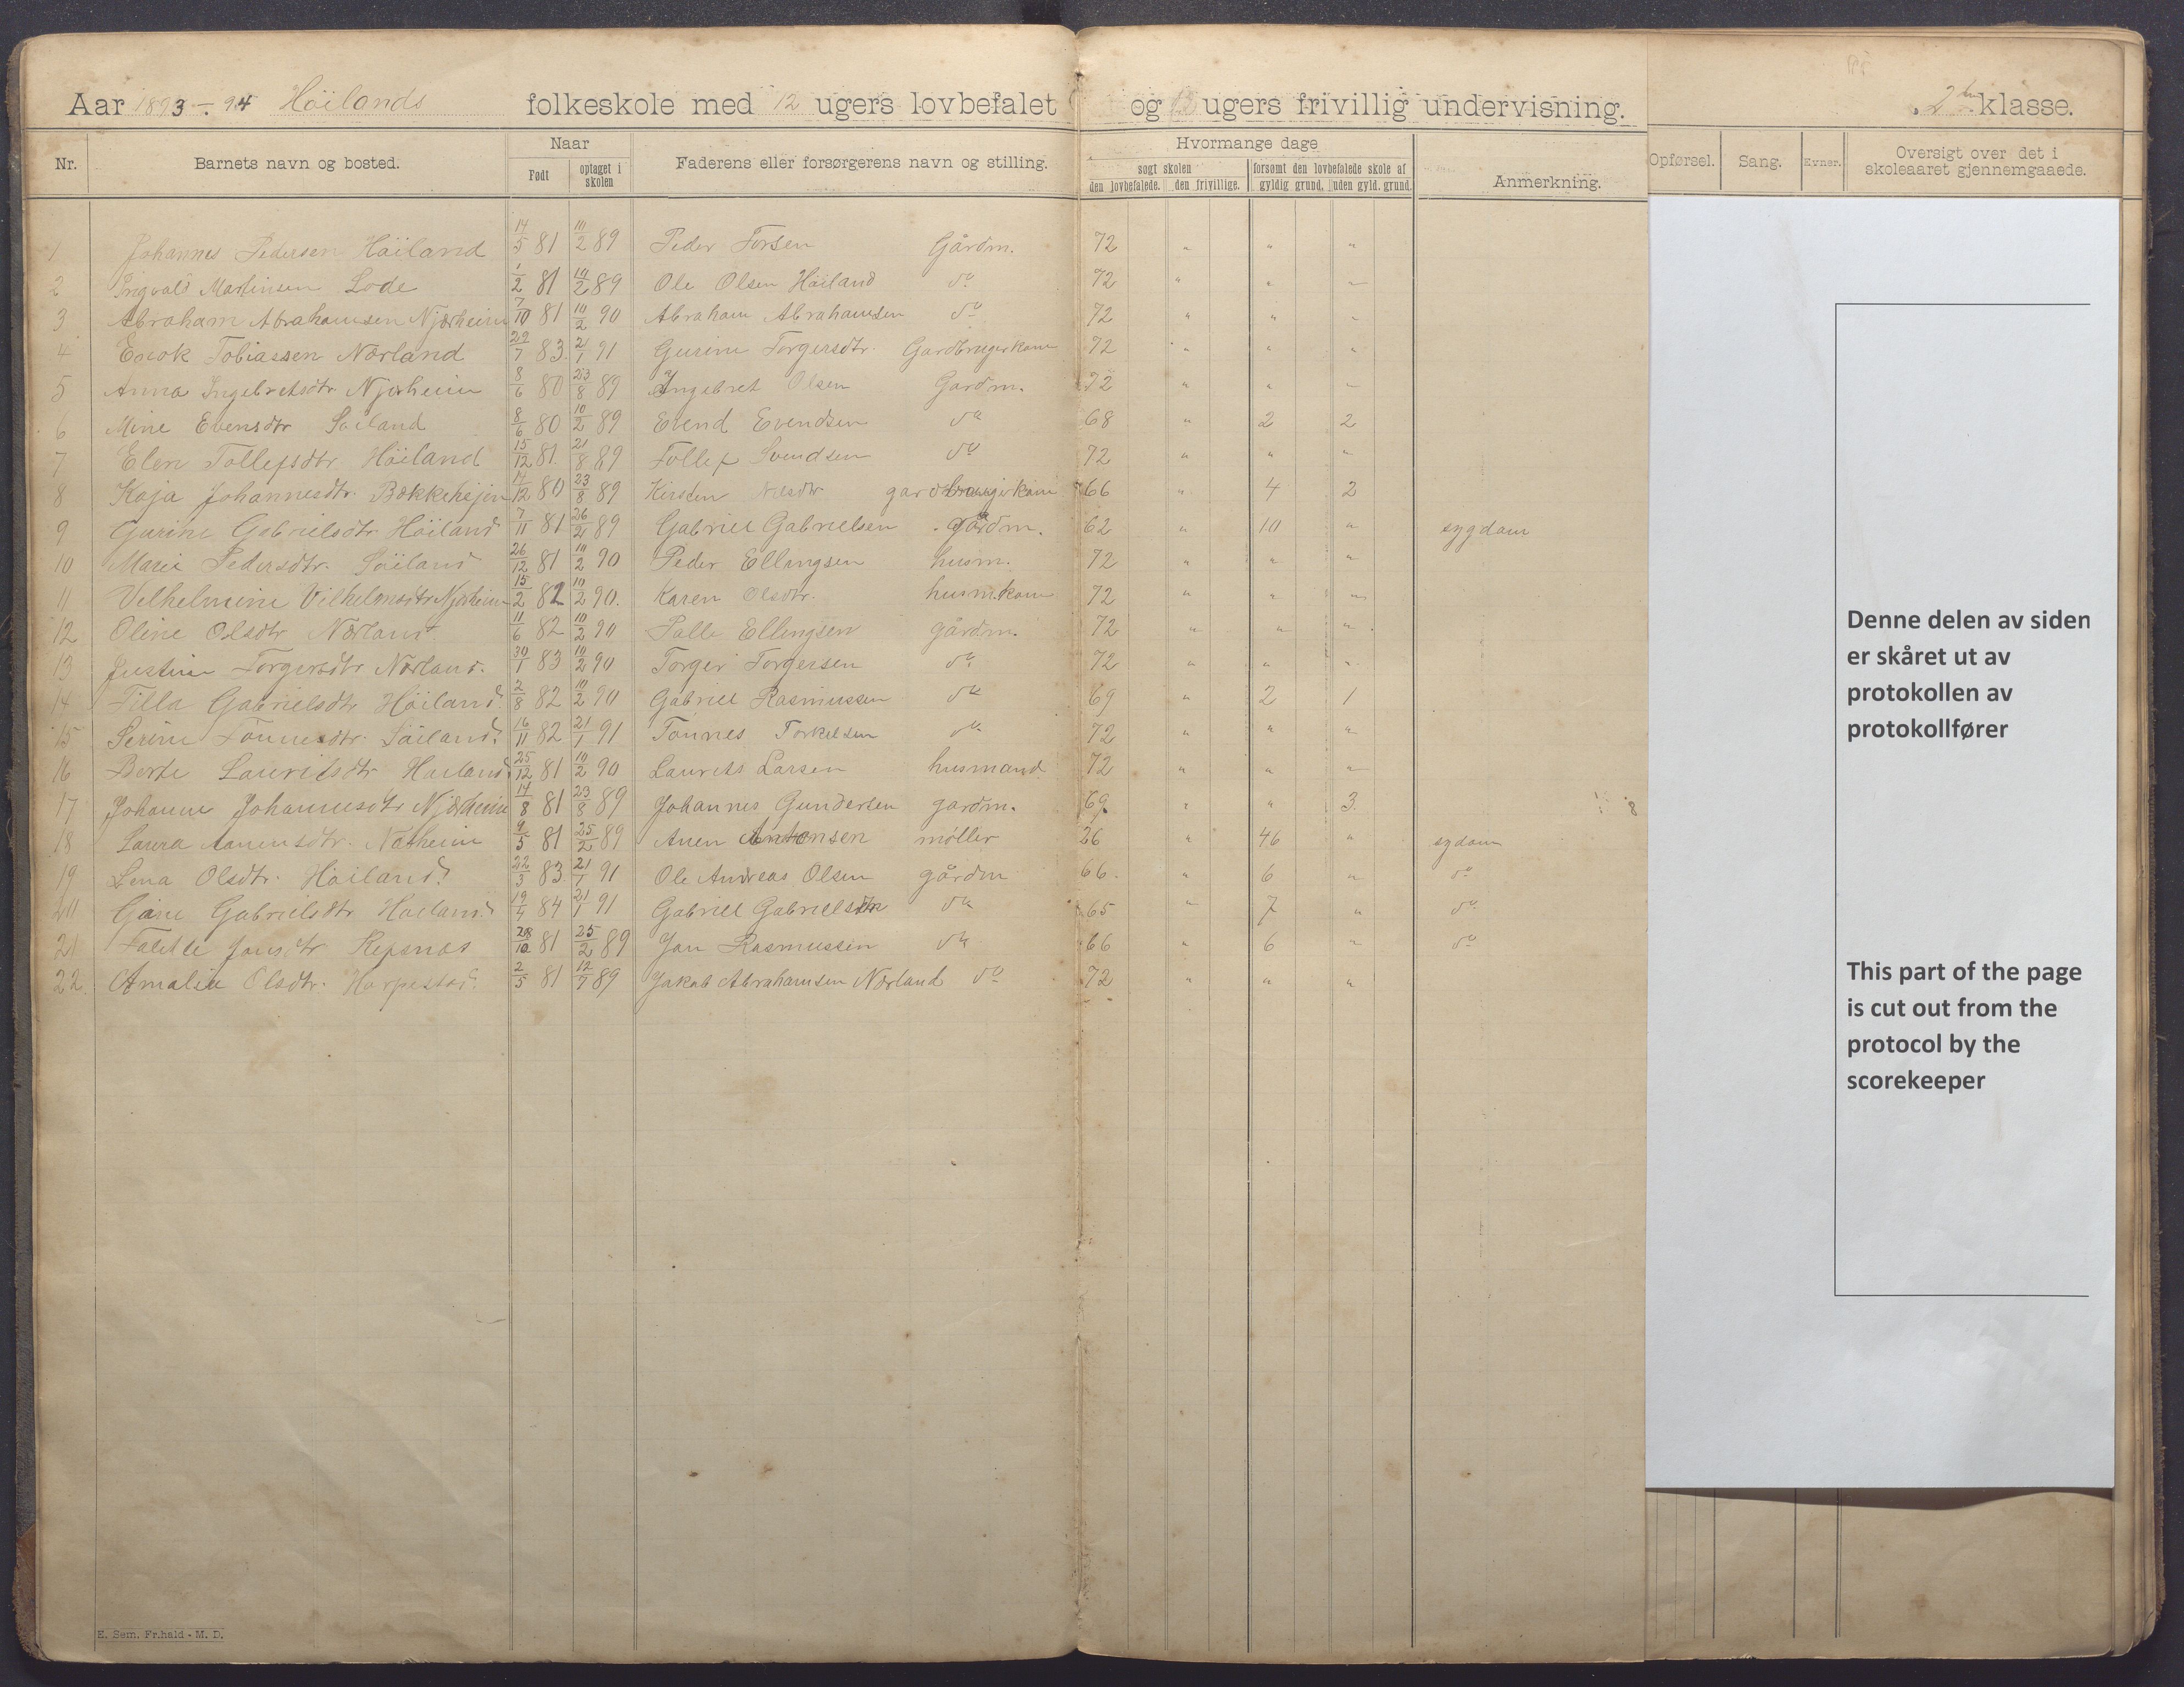 Aar 1893-94 Höilands folkeskole med 12 ugers lovbefalet og ugers frivillig undervisning. 2 klasse.
Nr. Barnets navn og bosted. Naar Født optaget i skolen Faderens eller forsørgerens navn og stilling. Hvormange dage søgt skolen den lovbefalede. den frivillige. forsømt den lovbefalede skole af gyldig grund. uden gyld. grund. Anmerkning. Opførsel. Sang. Evner. Oversigt over det i skoleaaret gjennemgaaede.
1 Johannes Pedersen Höiland 14/5 81 10/2 89 Peder Gårdm. 72 " " "
2 Ingvald Martinsen Lode 1/2 81 10/2 89 Ole Olsen Höiland do 72 " " "
3 Abraham Abrahamsen Njærheim 7/10 81 10/2 90 Abraham Abrahamsen do 72 " " "
4 Enok Tobiassen Nærland 29/7 83 21/1 91 Gurine Torgersdtr. Gardbrugerkone 72 " " "
5 Anna Ingebretsdtr Njærheim 8/6 80 23/8 89 Ingebret Olsen Gardm. 72 " " "
6 Mine Evensdtr Söiland 8/6 80 10/2 89 Evend Evendsen do 68 " 2 2
7 Elen Tollefsdtr. Höiland 15/12 81 21/8 89 Tollef Svendsen do 72 " " "
8 Kaja Johannesdtr. Bækkehejen 14/12 80 23/8 89 Kirsten Nilsdtr gardbrugerkone 66 " 4 2
9 Gurine Gabrielsdtr Höiland 7/11 81 26/2 89 Gabriel Gabrielsen gårdm. 62 " 10 " sygdom
10 Marie Pedersdtr. Söiland 26/12 81 10/2 90 Peder Ellingsen husm. 72 " " "
11 Vilhelmine Vilhelmsdtr Njærheim 15/2 82 10/2 90. Karen Olsdtr. husm.kone 72 " " "
12 Oline Olsdtr Nærland 11/6 82 10/2 90 Ellingsen gårdm. 72 " " "
13 Justine Torgersdtr Nærland. 30/1 83 10/2 90 Torger Torgersen do 72 " " "
14 Tilla Gabrielsdtr Höiland 2/8 82 10/2 90 Gabriel Rasmussen do 69 " 2 1
15 Serine Tönnesdtr. Söiland 16/11 82 21/1 91 Tönnes Torkelsen do 72 " " "
16 Berte Lauritsdtr Höiland 25/12 81 10/2 90 Laurits Larsen husmand 72 " " "
17 Johanne Johannesdtr Njærheim 14/8 81 23/8 89 Johannes Gundersen gardm. 69 " " 3
18 Laura 9/5 81 25/2 89 Anen Antonsen møller 26 " 46 " sydom
19 Lena Olsdtr. Höiland 22/3 83 21/1 91 Ole Andreas Olsen gårdm 66 " 6 " do
20 Gabrielsdtr Höiland 19/4 84 21/1 91 Gabriel do 65 " 7 " do
21 Jansdtr Repsnes 28/10 81 25/2 89 Jan Rasmussen do 66 " 6 " do
22. Amalie Olsdtr. Harpestad 2/5 81 12/7 89 Jakob Abrahamsen Nærland do 72 " " "
Denne delen av siden
er skåret ut av
protokollen av
protokollfører
This part of the page
is cut out from the
protocol by the
scorekeeper
E. Sem. Fr.hald - M. D.